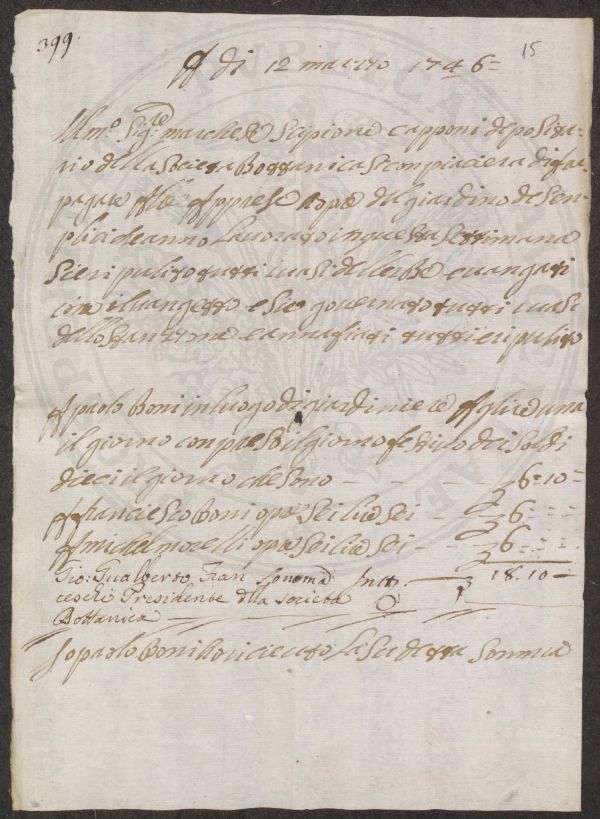 399.
15
A di 12 marzzo 1746=
Ill.mo Sig:re marchese Scipione capponi depositta=
rio della Socetta Bottanica Si conpiacera di far
pagare
opre del giardino de Sen=
plici che anno Lavoratto in questta Settimana
Si e ri pulitto tutti i vasi dellerbe e vangatti
con il vangetto e Si e governatto tutti i vasi
dello Stanzone e annafiati tutti e ri pulitto
A paolo Boni in luogo di giardiniere lire una
il giorno conpreso il giorno festtivo Soldi
dieci il giorno che Sono - - - 6=10=
A franciesco Boni opre Sei lire Sei - 6=:=
A michel morelli opre Sei lire Sei - - 6=:=
Gio: Gualberto Fran Somma in tt. — 18.10=
ceschi Presidente dlla Società
Bottanica
Io paolo Boni o ricieutto La Su detta Somma